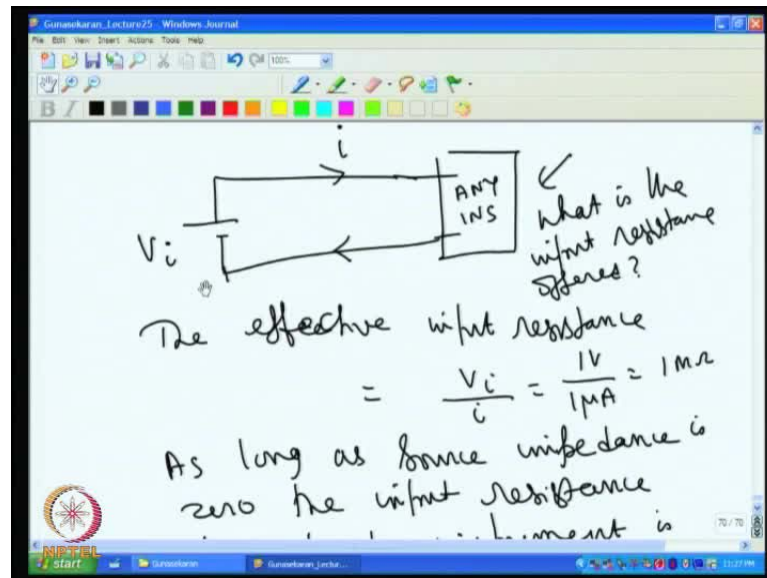 Gunasekaran_Lecture25 - Windows Journal
File Edit View Insert Actions Tools Help
100%
B I
i
Vi
ANY
INS
What is the
input resistance
offeres?
The effective input resistance
= Vi/i = 1V/1μA = 1MΩ
As long as source impedance is
zero the input resistance
instrument is
70 / 70
NPTEL
start Gunasekaran Gunasekaran_Lectur... 11:27 PM